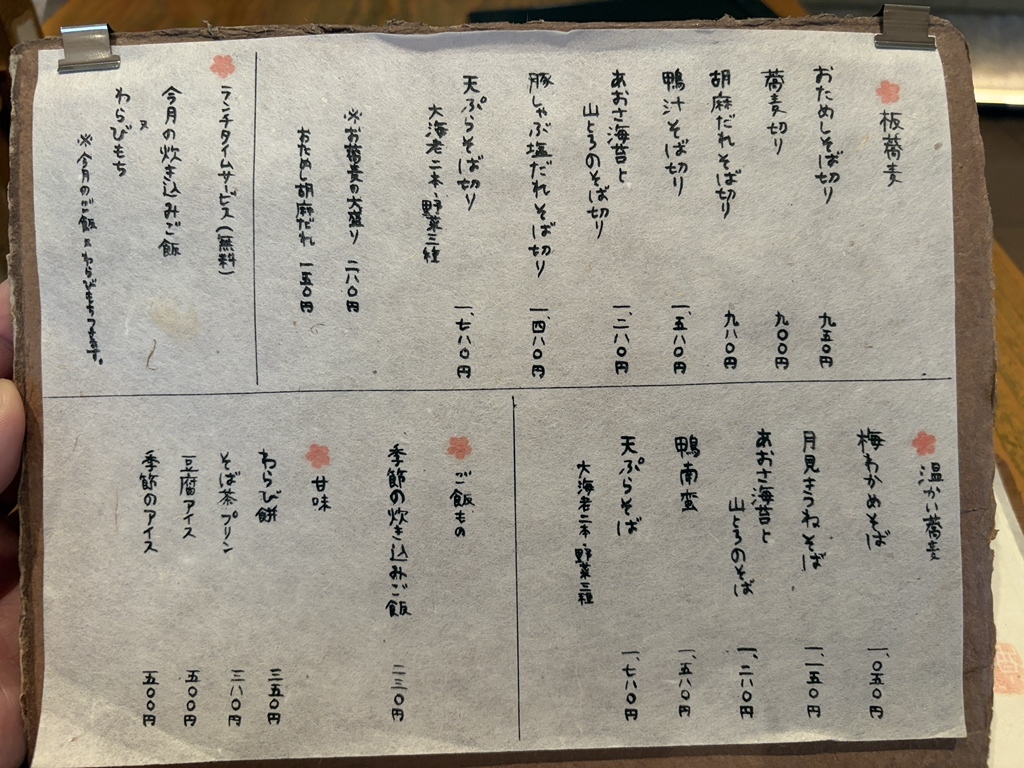 板蕎麦
おためしそば切り 九五〇円
蕎麦切り 九〇〇円
胡麻だれそば切り 九八〇円
鴨汁そば切り 一、五八〇円
あおさ海苔と
山とろのそば切り 一、二八〇円
豚しゃぶ塩だれそば切り 一、四八〇円
天ぷらそば切り 一、七八〇円
大海老二本・野菜三種
※お蕎麦の大盛り 二八〇円
おためし胡麻だれ 一五〇円
ランチタイムサービス(無料)
今月の炊き込みご飯
又
わらびもち
※今月のご飯又わらびもちつきます。
温かい蕎麦
梅わかめそば 一、〇五〇円
月見きつねそば 一、一五〇円
あおさ海苔と
山とろのそば 一、二八〇円
鴨南蛮 一、五八〇円
天ぷらそば 一、七八〇円
大海老二本・野菜三種
ご飯もの
季節の炊き込みご飯 二三〇円
甘味
わらび餅 三五〇円
そば茶プリン 三八〇円
豆腐アイス 五〇〇円
季節のアイス 五〇〇円